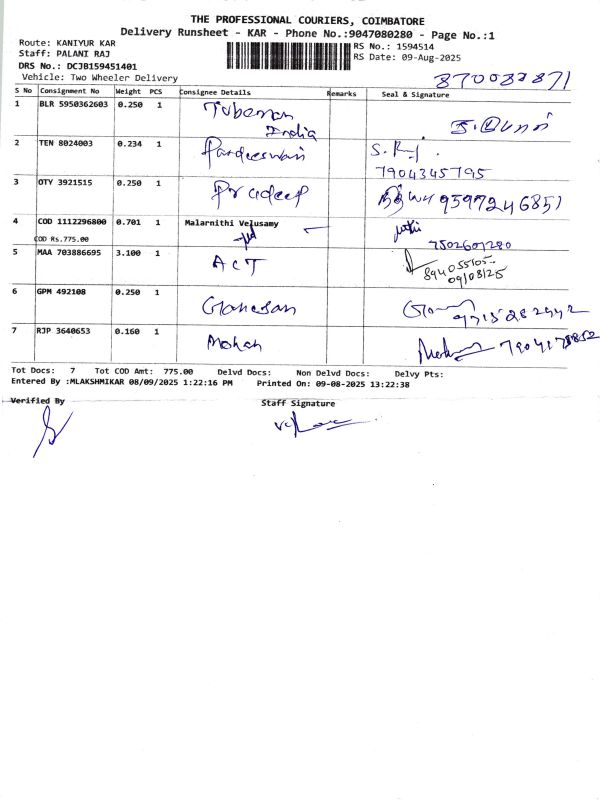 THE PROFESSIONAL COURIERS, COIMBATORE
Delivery Runsheet - KAR - Phone No.:9047080280 - Page No.:1
Route: KANIYUR KAR
RS No.: 1594514
Staff: PALANI RAJ
RS Date: 09-Aug-2025
DRS No.: DCJB159451401
Vehicle: Two Wheeler Delivery
S No Consignment No Weight PCS Consignee Details Remarks Seal & Signature
1 BLR 5950362603 0.250 1
India
2 TEN 8024003 0.234 1 S.
7904345795
3 OTY 3921515 0.250 1 Pradeep 9597246851
4 COD 1112296800 0.701 1 Malarnithi Velusamy
COD Rs.775.00 7502601280
5 MAA 703886695 3.100 1 ACT
09/08/25
6 GPM 492108 0.250 1 Ganesan
7 RJP 3640653 0.160 1 Mohan
Tot Docs: 7 Tot COD Amt: 775.00 Delvd Docs: Non Delvd Docs: Delvy Pts:
Entered By :MLAKSHMIKAR 08/09/2025 1:22:16 PM Printed On: 09-08-2025 13:22:38
Verified By Staff Signature